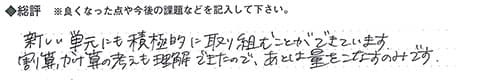 ◆総評 ※良くなった点や今後の課題などを記入して下さい。
新しい単元にも積極的に取り組むことができています。
割算、かけ算の考えも理解できたので、あとは量をこなすのみです。